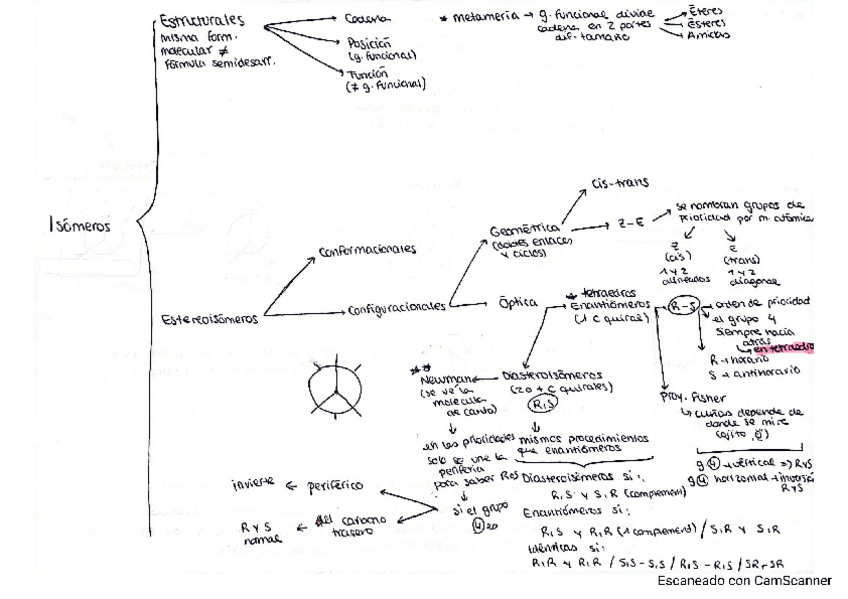 Estructurales
misma form.
molecular ≠
fórmula semidesarr.
Cadena
Posición
(g. funcional)
Función
(≠ g. funcional)
* metamería → g. funcional divide
cadena en 2 partes
dif. tamaño
Éteres
Ésteres
Amidas
Isómeros
Estereoisómeros
Conformacionales
Configuracionales
Geométrica
(dobles enlaces
y ciclos)
cis-trans
Z-E
se nombran grupos de
prioridad por m. atómica
Z
(cis)
1 y 2
alineados
E
(trans)
1 y 2
diagonal
Óptica
* tetraedros
Enantiómeros
(1 C quiral)
R-S
orden de prioridad
el grupo 4
siempre hacia
atrás
en tetraedro
R → horario
S → antihorario
Proy. Fisher
↳ cuñas depende de
donde se mire
(ojito,
g④ → vertical => R y S
g④ horizontal → inversión
R y S
Diasteroisómeros
(2 o + C quirales)
R,S
mismos procedimientos
que enantiómeros
**
Newman
(se ve la
molécula
de canto)
en las prioridades
solo se une la
periferia
para saber R o S
si el grupo
④ es
periférico
invierte
del carbono
trasero
R y S
normal
Diasteroisómeros si:
R,S y S,R (complement)
Enantiómeros si:
R,S y R,R (1 complement) / S,R y S,R
Idénticas si:
R,R y R,R / S,S - S,S / R,S - R,S / SR - SR
Escaneado con CamScanner